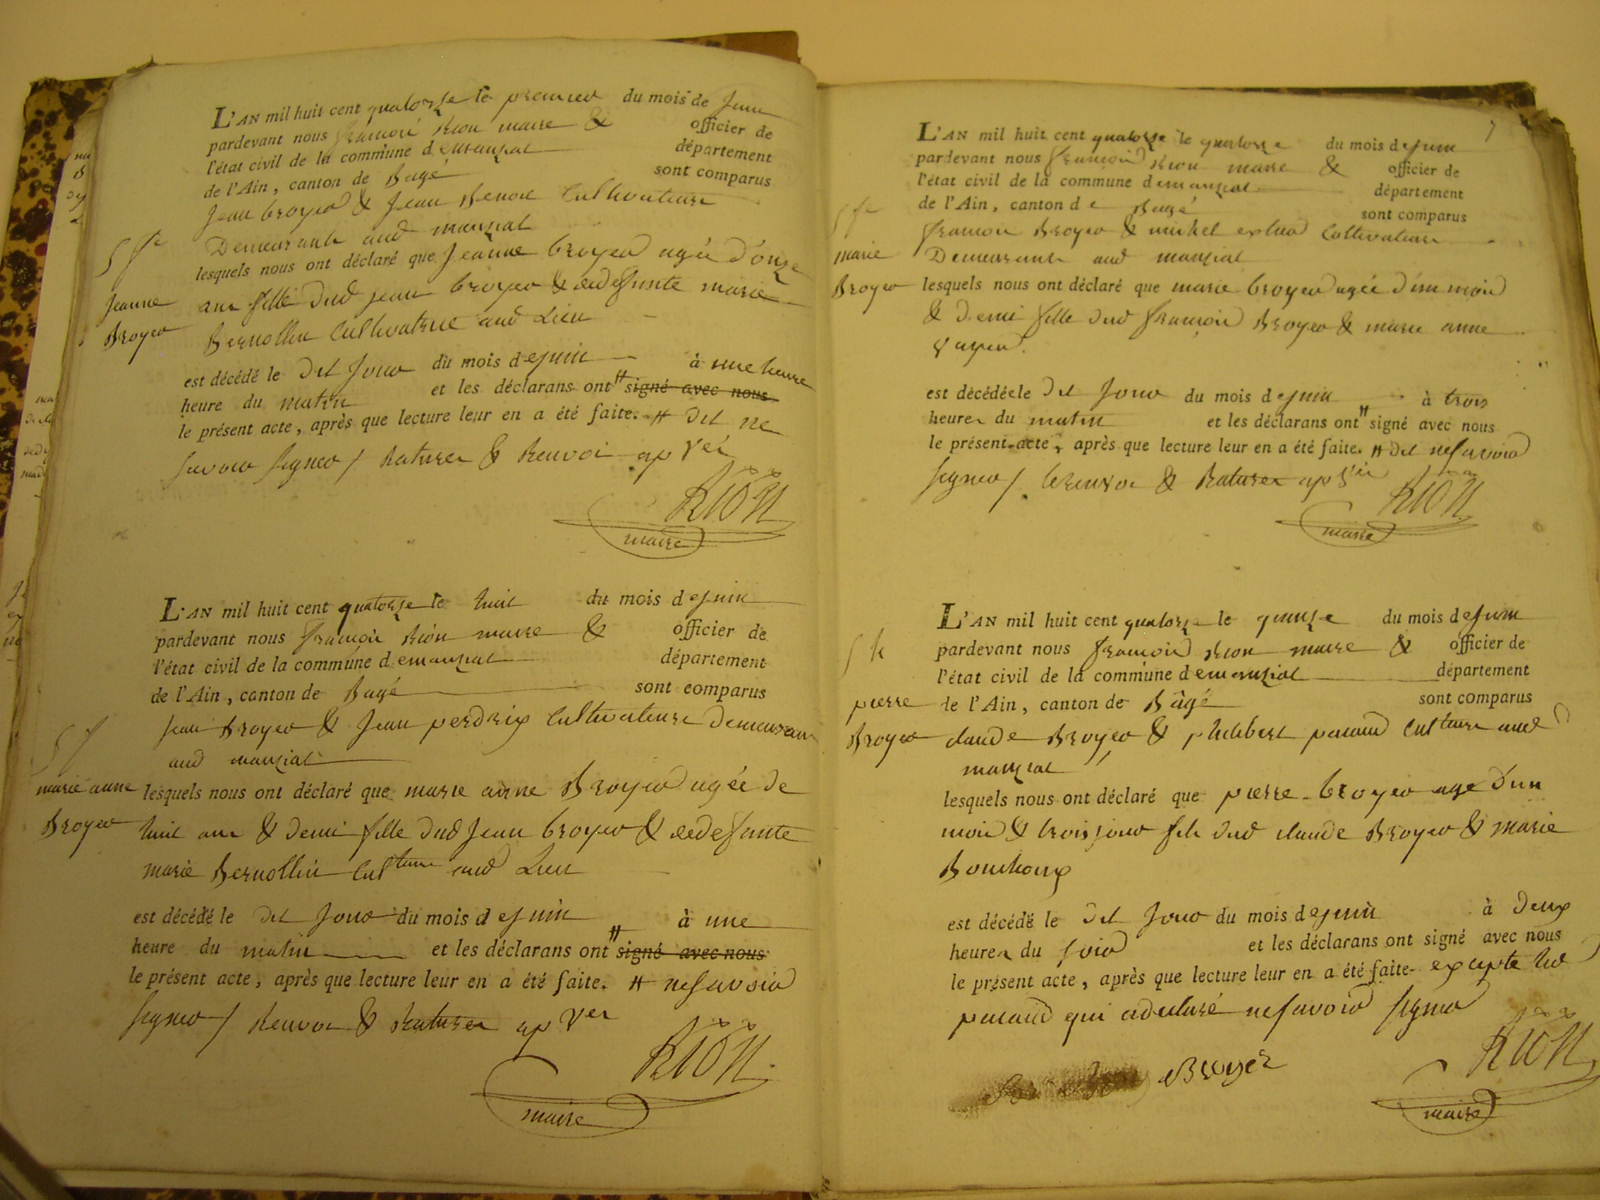 L'AN mil huit cent quatorze le premier du mois de Juin
pardevant nous françois Rion maire & officier de
l'état civil de la commune d emanziat département
de l'Ain, canton de Bagé sont comparus
Jean broyer & Jean Benoit Cultivateurs
Demeurants aud manziat
lesquels nous ont déclaré que Jeanne broyer agée d'onze
ans fille dud jean broyer & de defunte marie
Bernollin Cultivatrice aud Lieu
est décédé le dit Jour du mois dejuin à une heure
heure du matin et les déclarans ont # signé avec nous
le présent acte, après que lecture leur en a été faite. # dit ne
savoir signer / Ratures & Renvoi apvés
RION
maire
Jeanne
Broyer
L'AN mil huit cent quatorze le huit du mois dejuin
pardevant nous françois Rion maire & officier de
l'état civil de la commune d emanziat département
de l'Ain, canton de Bagé sont comparus
Jean Broyer & Jean perdrix Cultivateurs demeurans
aud manziat
marie anne
Broyer
lesquels nous ont déclaré que marie anne Broyer agée de
huit ans & demi fille dud Jean broyer & de defunte
marie Bernollin Cultteurs aud Lieu
est décédé le dit Jour du mois d ejuin à une
heure du matin et les déclarans ont # signé avec nous
le présent acte, après que lecture leur en a été faite. # nesavoir
signer / Renvoi & Ratures apvés
RION
maire
7
L'AN mil huit cent quatorze le quatorze du mois dejuin
pardevant nous françois Rion maire & officier de
l'état civil de la commune d emanziat département
de l'Ain, canton d e Bagé sont comparus
françois Broyer & michel Cultivateurs
Demeurants aud manziat
marie
Broyer
lesquels nous ont déclaré que marie broyer agée d'un mois
& demi fille dud françois Broyer & marie anne
est décédée le dit Jour du mois dejuin à trois
heures du matin et les déclarans ont # signé avec nous
le présent acte, après que lecture leur en a été faite. # dit nesavoir
signer / & Ratures apvés
RION
maire
L'AN mil huit cent quatorze le quinze du mois dejuin
pardevant nous françois Rion maire & officier de
l'état civil de la commune d emanziat département
de l'Ain, canton de Bàgé sont comparus
pierre
Broyer
claude Broyer & philibert pacaud Cultteurs aud
manziat
lesquels nous ont déclaré que pierre broyer age d'un
mois & trois jours fils dud claude Broyer & marie
Bouchoux
est décédé le dit Jour du mois dejuin à deux
heures du soir et les déclarans ont signé avec nous
le présent acte, après que lecture leur en a été faite excepté led
pacaud qui adeclaré nesavoir signer
Broyer
RION
maire